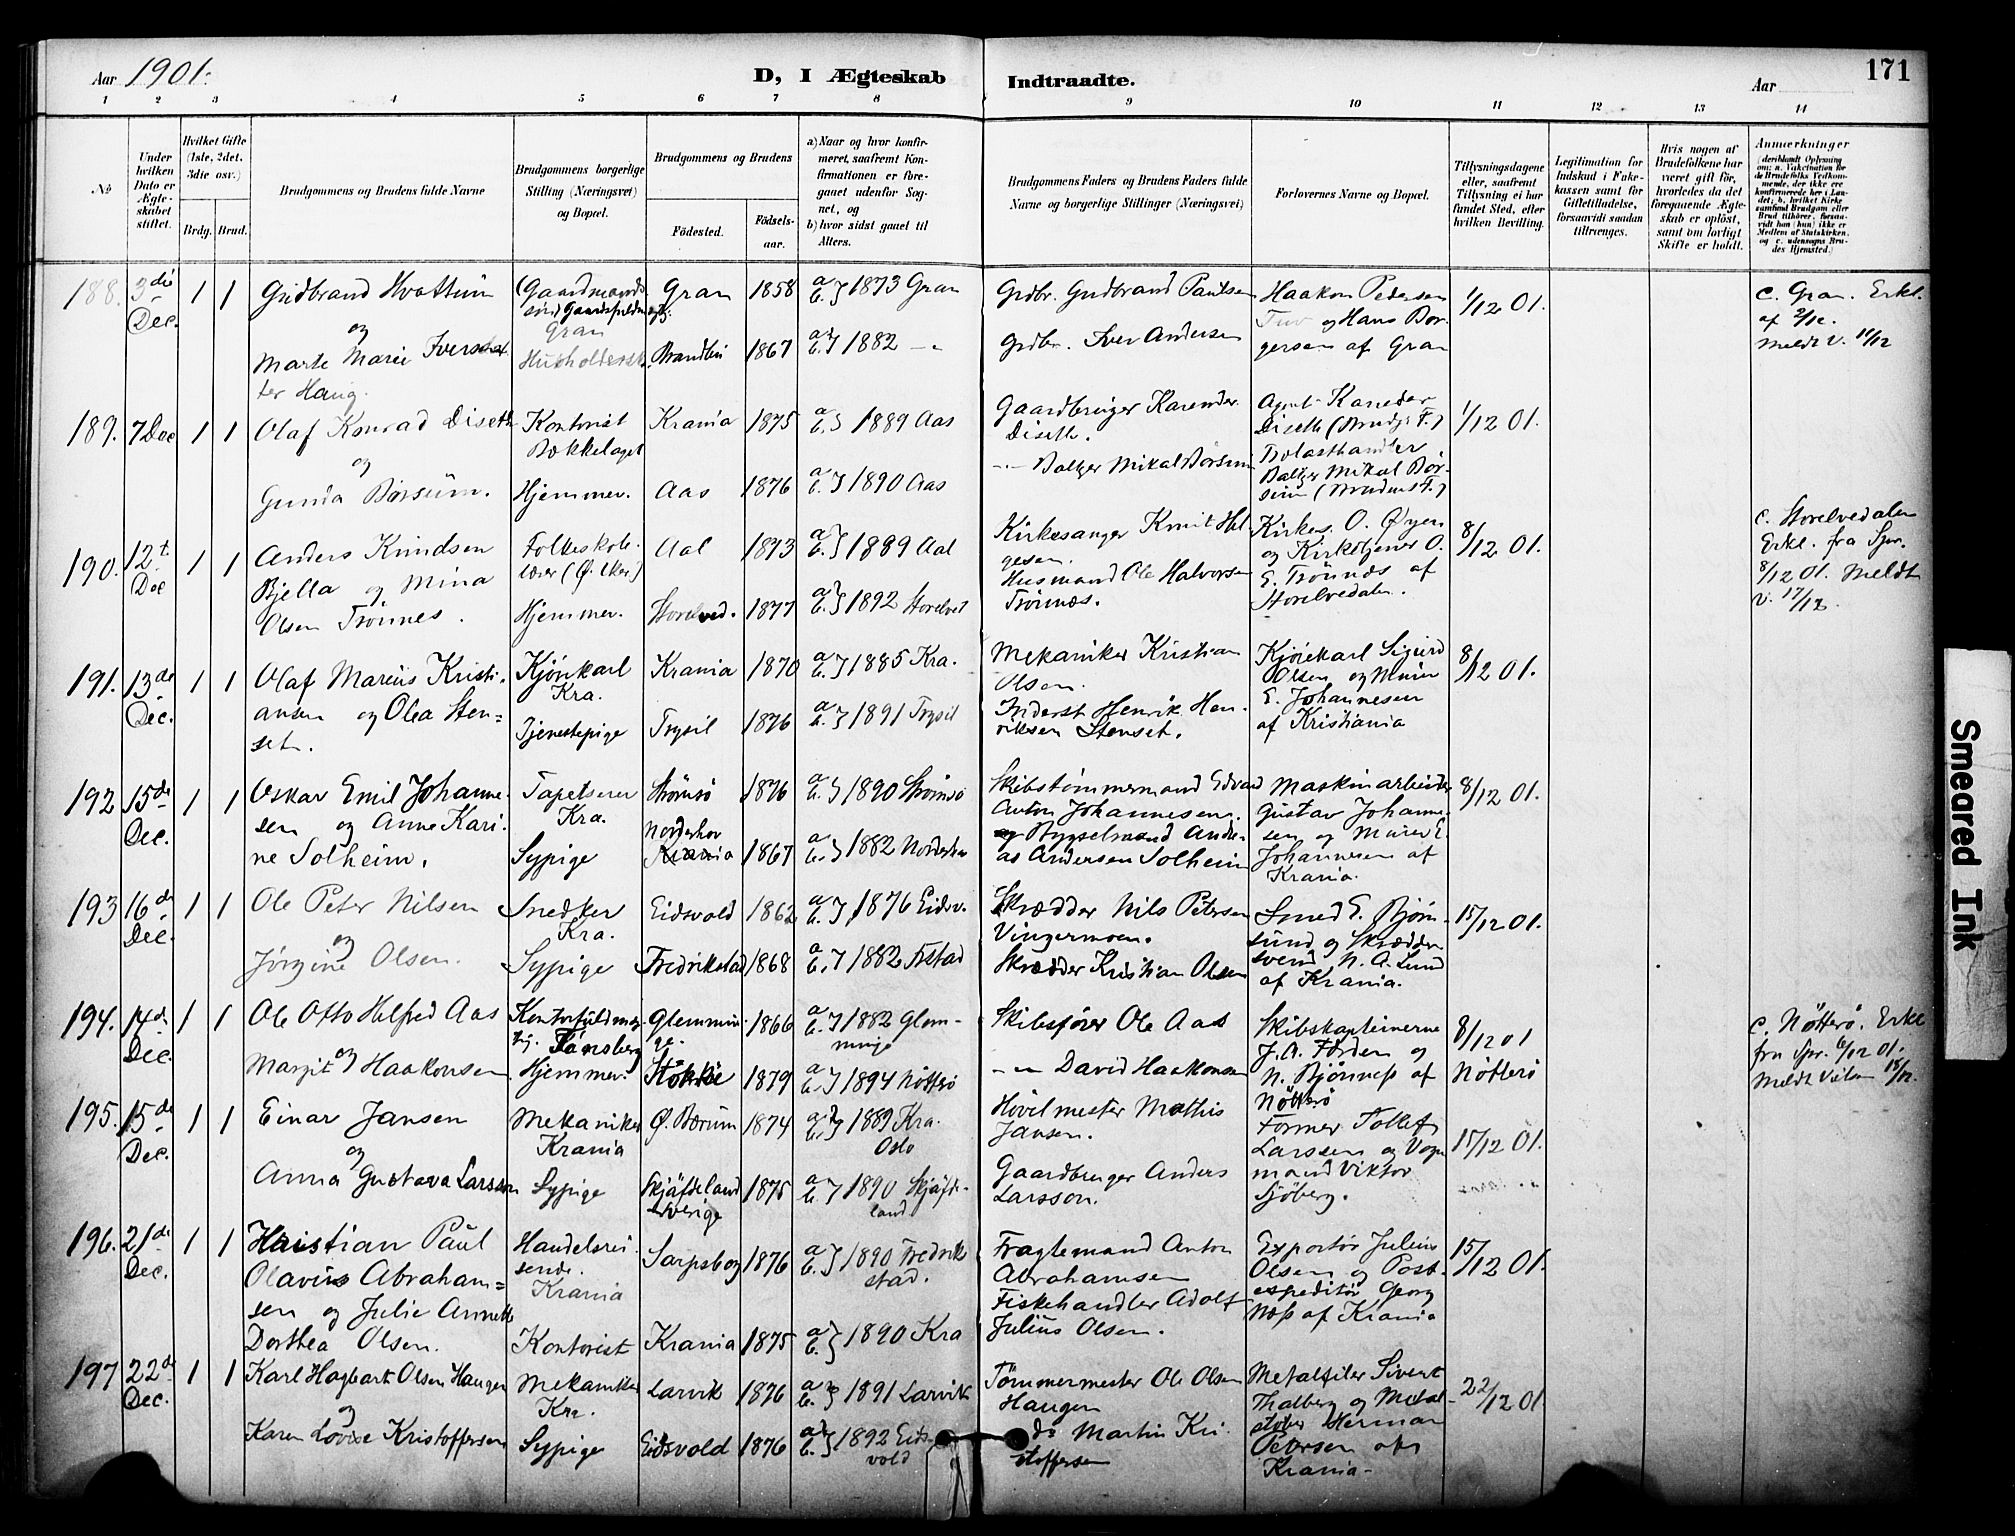 Aar 1901.
D, I Ægteskab
Indtraadte.
Aar
171
1 2 3 4 5 6 7 8 9 10 11 12 13 14
No
Under hvilken Dato er Ægteskabet stiftet.
Hvilket Gifte (1ste, 2det, 3die osv.)
Brdg. Brud.
Brudgommens og Brudens fulde Navne
Brudgommens borgerlige Stilling (Næringsvei) og Bopæl.
Brudgommens og Brudens
Fødested.
Fødselsaar.
a) Naar og hvor konfirmeret, saafremt Konfirmationen er foregaaet udenfor Sognet, og
b) hvor sidst gaaet til Alters.
Brudgommens Faders og Brudens Faders fulde Navne og borgerlige Stillinger (Næringsvei)
Forlovernes Navne og Bopæl.
Tillysningsdagene eller, saafremt Tillysning ei har fundet Sted, efter hvilken Bevilling.
Legitimation for Indskud i Enkekassen samt for Giftetilladelse, forsaavidt saadan tiltrænges.
Hvis nogen af Brudefolkene har været gift før, hvorledes da det foregaaende Ægteskab er opløst, samt om lovligt Skifte er holdt.
Anmærkninger
188. 3die Dec. 1 1
Gudbrand Hvattum
og
Marte Marie Iversdatter Haug.
Gran
Gran 1858 a b } 1873 Gran
Brandbu 1867 a b } 1882 – "
Grdbr. Gudbrand Paulsen
Grdbr. Iver Andersen
Haakon Pedersen
og Hans Borgersen af Gran
1/12 01.
c. Gran. Erkl. af 2/12. Meldt v.
189. 7 Dec 1 1
Olaf Konrad Diseth
og
Gunda Børsum.
Kontorist
Bækkelaget
Hjemmev.
Krania 1875 a b } 1889 Aas
Aas 1876 a b } 1890 Aas
Gaardbruger
Diseth.
– " – Baltzer Mikal Børsum
Agent
Diseth (Brudg. F.)
Trelasthandler
Baltzer Mikal Børsum (Brudens F.)
1/12 01.
190. 12t Dec 1 1
Anders Knudsen
Bjella og Mina
Olsen Trønnes.
Folkeskolelærer (Ø. Eker)
Hjemmev.
Aal 1873 a b } 1889 Aal
Storelved. 1877 a b } 1892 Storelved
Kirkesanger Knut Helgesen.
Husmand Ole Halvorsen
Trønnæs.
Kirkes. O. Øyen
og Kirketjener O.
E. Trønnæs af
Storelvedalen.
8/12 01.
c. Storelvedalen
Erkl. fra Spr.
8/12 01. Meldt
v. 17/12.
191. 13de Dec. 1 1
Olaf Marius Kristiansen og Olea Stenset.
Kjørekarl
Kra.
Tjenestepige
Krania 1870 a b } 1885 Kra.
Trysil 1876 a b } 1891 Trysil
Mekaniker Kristian
Olsen.
Inderst Henrik Henriksen Stenset.
Kjørekarl Sigurd
Olsen og Murer
E. Johannesen
af Kristiania
8/12 01.
192 15de Dec. 1 1
Oskar Emil Johannesen og Anne Karine Solheim.
Tapetserer
Kra.
Sypige
Strømsø 1876 a b } 1890 Strømsø
Norderhov
Krania 1867 a b } 1882 Norderhov
Skibstømmermand Edvard
Anton Johannesen.
og Bygselmand Andreas Andersen Solheim
Maskinarbeider
Gustav Johannesen og Murer E.
Johannesen af
Krania.
8/12 01.
193 16de Dec. 1 1
Ole Peter Nilsen
og
Jørgine Olsen.
Snedker
Kra.
Sypige
Eidsvold 1862 a b } 1876 Eidsv.
Fredrikstad 1868 a b } 1882 Fstad
Skrædder Nils Petersen
Vingermoen.
Skrædder Kristian Olsen
Smed E. Bjørnsund og Skræddersvend N. A. Lund
af Krania.
15/12 01.
194. 14de Dec. 1 1
Ole Otto Helfred Aas
og
Margit Haakonsen
Kontorfuldmægtig. Tønsberg
Hjemmev.
Glemminge 1866 a b } 1882 Glemminge
Stokke 1879 a b } 1894 Nøtterø
Skibsfører Ole Aas
– " – David Haakonsen
Skibskapteinerne
J. A. Førden og
N. Bjønness af
Nøtterø
8/12 01
Nøtterø
c. Nøtterø. Erkl.
fra Spr. 6/12 01.
195. 15de Dec. 1 1
Einar Jansen
og
Anna Gustava Larsson
Mekaniker
Krania
Sypige
Ø. Bærum 1874 a b } 1889 Kra.
Oslo
Skjäfdeland
Sverige 1875 a b } 1890 Skjäfdeland
Høvelmester Mathis
Jansen.
Gaardbruger Anders
Larsson.
Former Tollef
Larssen og Vognmand Viktor
Sjøberg.
15/12 01.
196. 21de Dec. 1 1
Kristian Paul
Olavius Abrahamsen og Julie Annette
Dorthea Olsen.
Handelsreisende.
Krania
Kontorist
Sarpsborg 1876 a b } 1890 Fredrikstad.
Krania 1875 a b } 1890 Kra
Fragtemand Anton
Abrahamsen
Fiskehandler Adolf
Julius Olsen.
Exportør Julius
Olsen og Postexpeditør Georg
Næss af Krania
15/12 01.
197 22de Dec. 1 1
Karl Hagbart Olsen Haugen
og
Karen Lovise Kristoffersen
Mekaniker
Kra.
Sypige
Larvik 1876 a b } 1891 Larvik
Eidsvold 1876 a b } 1892 Eidsvold
Tømmermester Ole Olsen
Haugen
do Martin Kristoffersen
Metalfiler Sivert
Thalberg og Metalstøber Herman
Petersen af
Krania.
22/12 01.
Smeared Ink